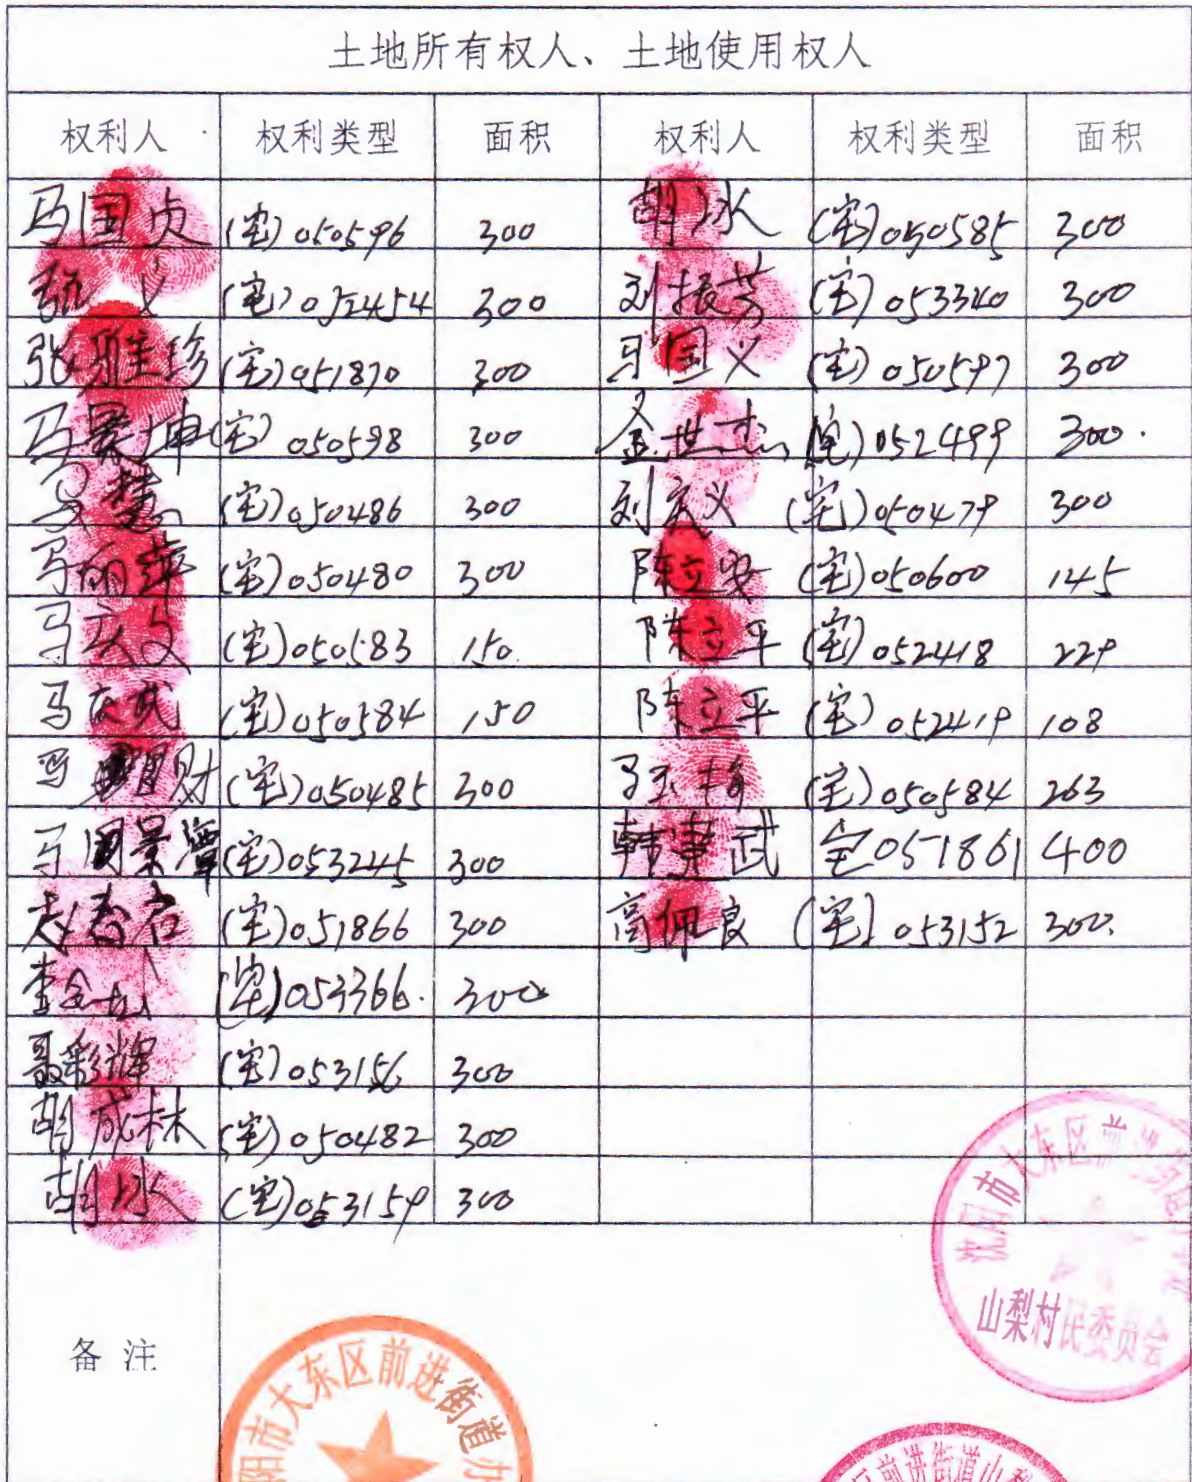 土地所有权人、土地使用权人
权利人 权利类型 面积 权利人 权利类型 面积
马国贞 (宅)050596 300 胡冰 (宅)050585 300
义 (宅)052454 300 刘振芳 (宅)053340 300
张雅珍 (宅)051870 300 马国义 (宅)050597 300
马景坤 (宅)050598 300 金世杰 (宅)052499 300.
马慧 (宅)050486 300 刘庆义 (宅)050479 300
马丽萍 (宅)050480 300 陈立安 (宅)050600 145
马庆文 (宅)050583 150 陈立平 (宅)052418 229
马庆武 (宅)050584 150 陈立平 (宅)052419 108
马 财 (宅)050485 300 马玉梅 (宅)050584 263
马 景 (宅)053245 300 韩惠武 宅051861 400
赵春启 (宅)051866 300 高佩良 (宅)053152 300.
李金山 (宅)053366. 300
聂彩辉 (宅)053156 300
胡成林 (宅)050482 300
胡冰 (宅)053159 300
沈阳市大东区前进街道
山梨村民委员会
备注
阳市大东区前进街道办
区前进街道山梨